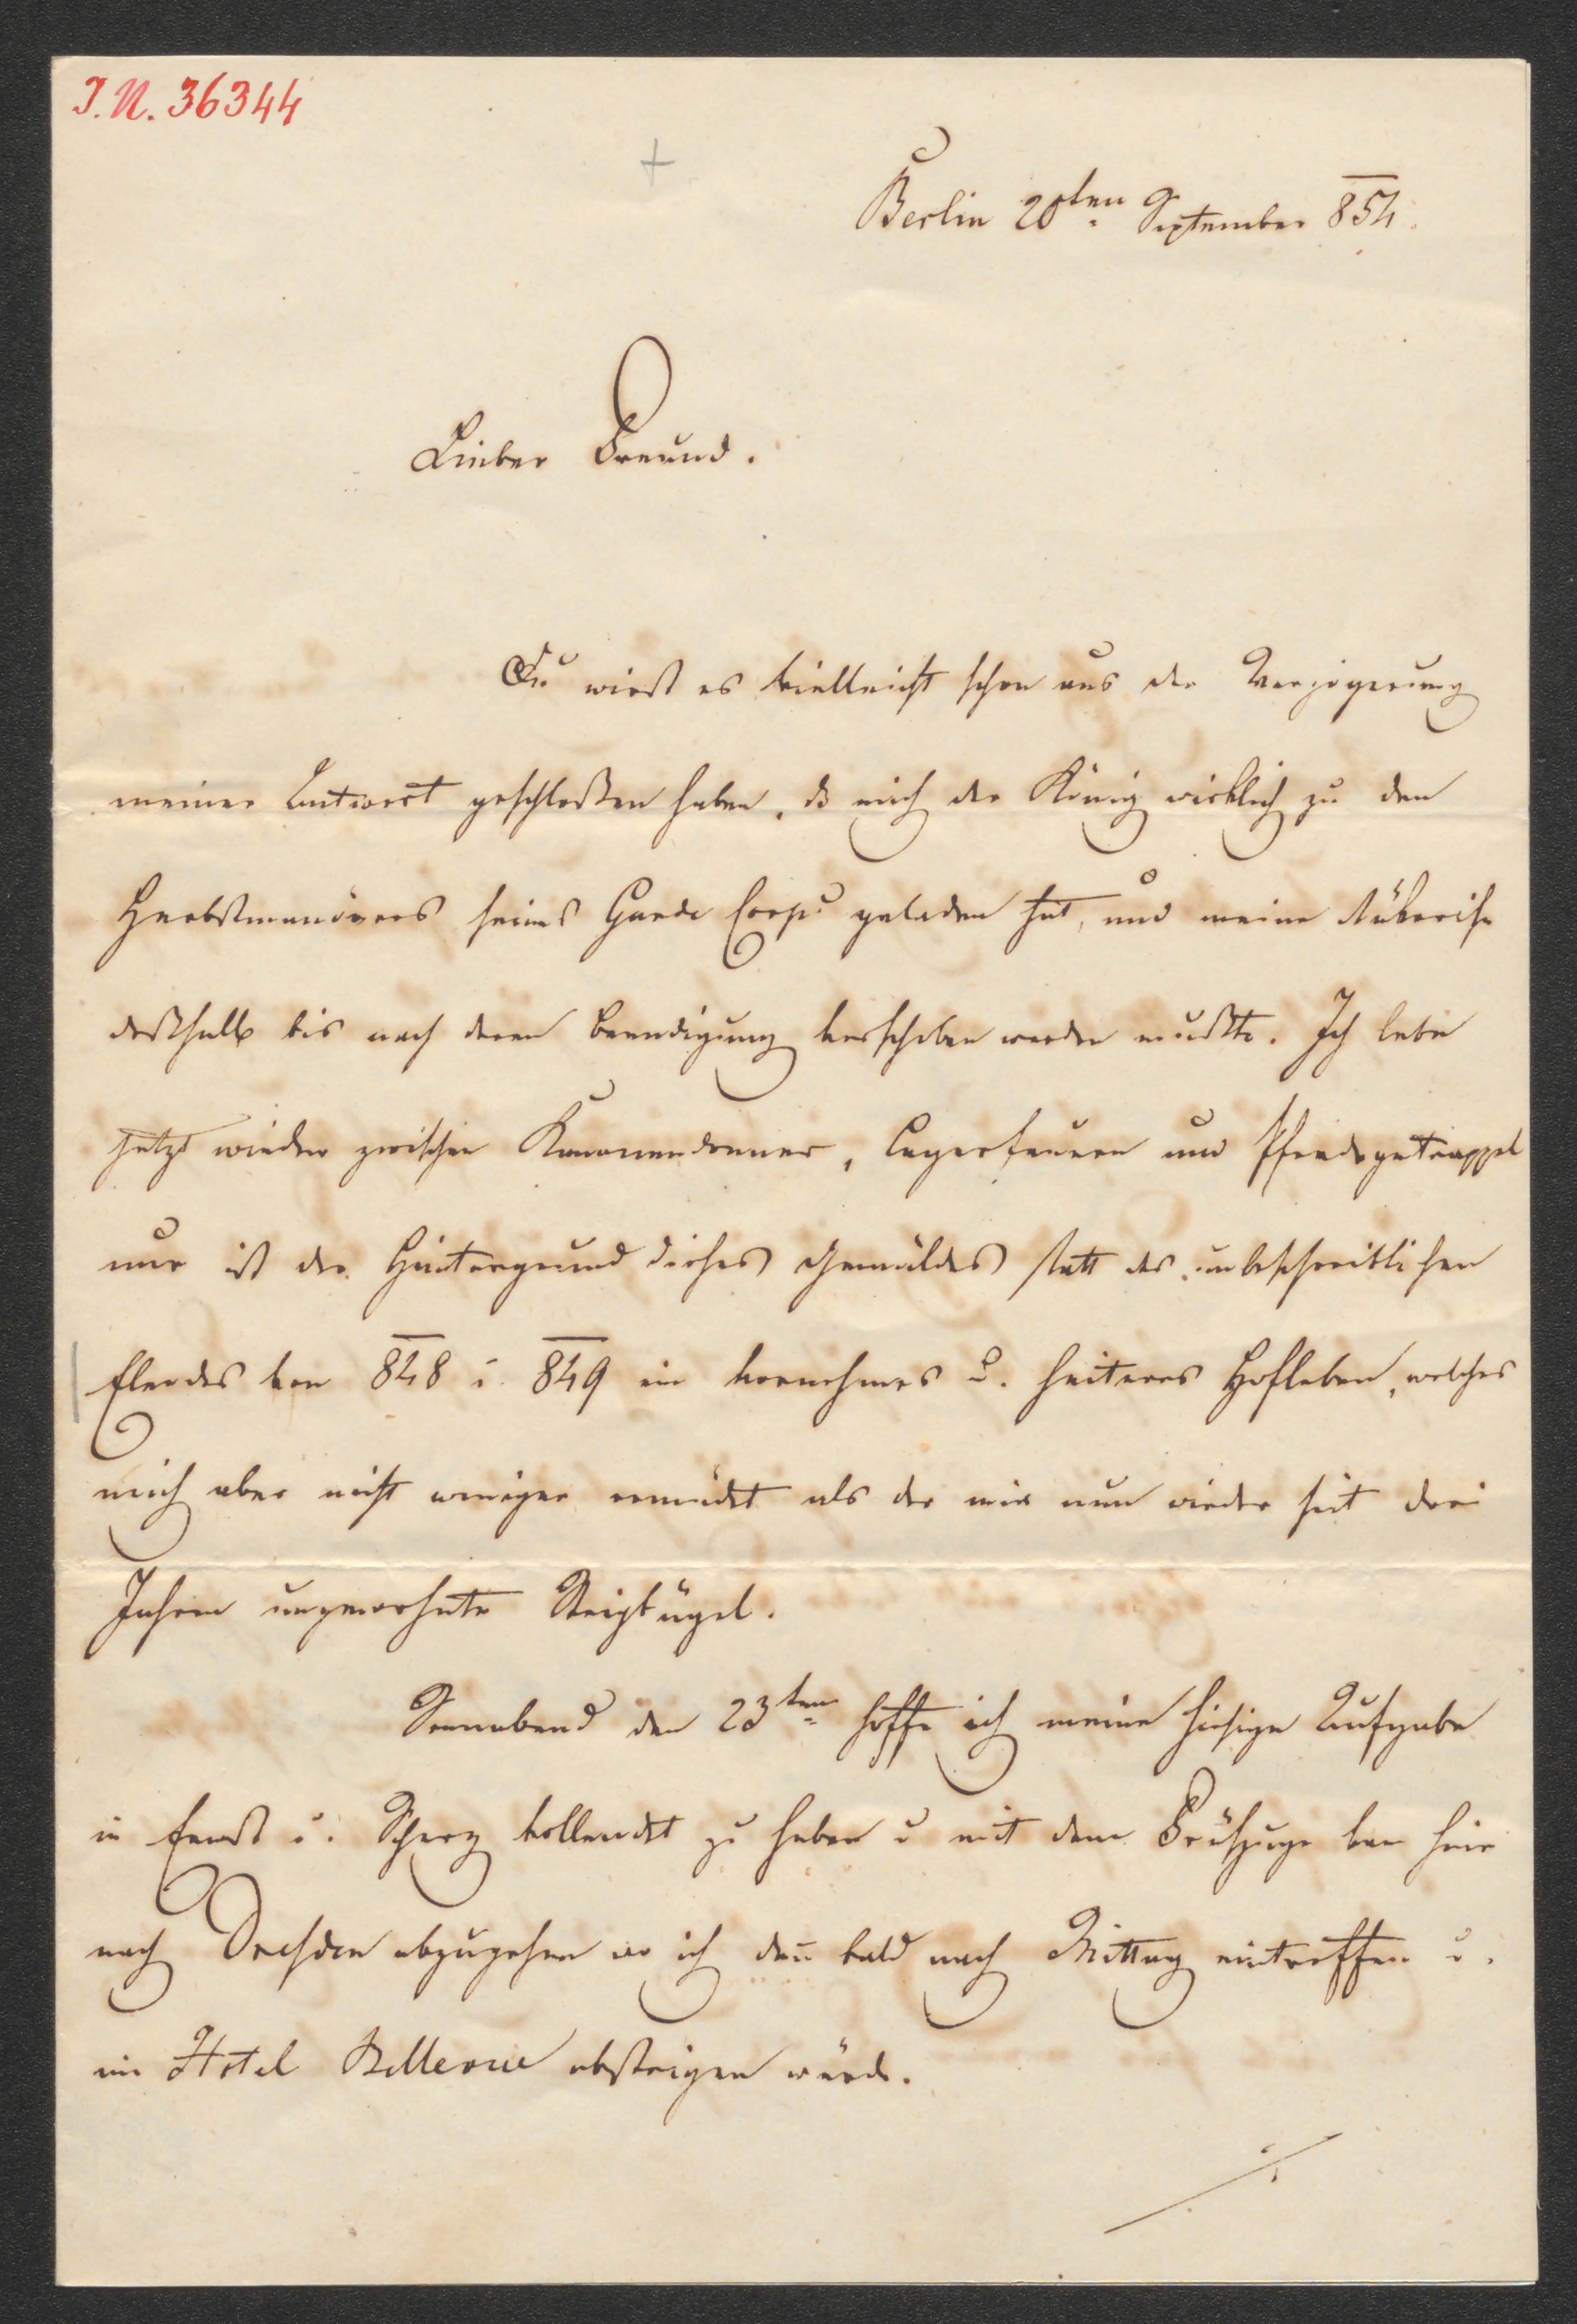 I. N. 36344
Berlin 20ten September 854.
Lieber Freund.
Du wirst es vielleicht schon aus der Verzögerung
meiner Antwort geschloßen haben, dß mich der König wirklich zu den
Herbstmanövers seines Garde Corps geladen hat, und meine Rükreise
deßhalb bis nach deren Beendigung verschoben werden mußte. Ich lebe
jetzt wieder zwischen Kanonendonner, Lagerfeuern und Pferdegetrappel
nur ist der Hintergrund dieses Gemäldes statt des unbeschreiblichen
Elendes von 848 u. 849 ein vornehmes u. heiteres Hofleben, welches
mich aber nicht weniger ermüdet als der mir nun wieder seit drei
Jahren ungewohnte Steigbügel.
Sonnabend den 23ten hoffe ich meine hiesige Aufgabe
in Ernst u. Scherz vollendet zu haben u mit dem Frühzuge von hier
nach Dresden abzugehen wo ich dan̄ bald nach Mittag eintreffen u.
im Hotel Bellevue absteigen würde.
./.